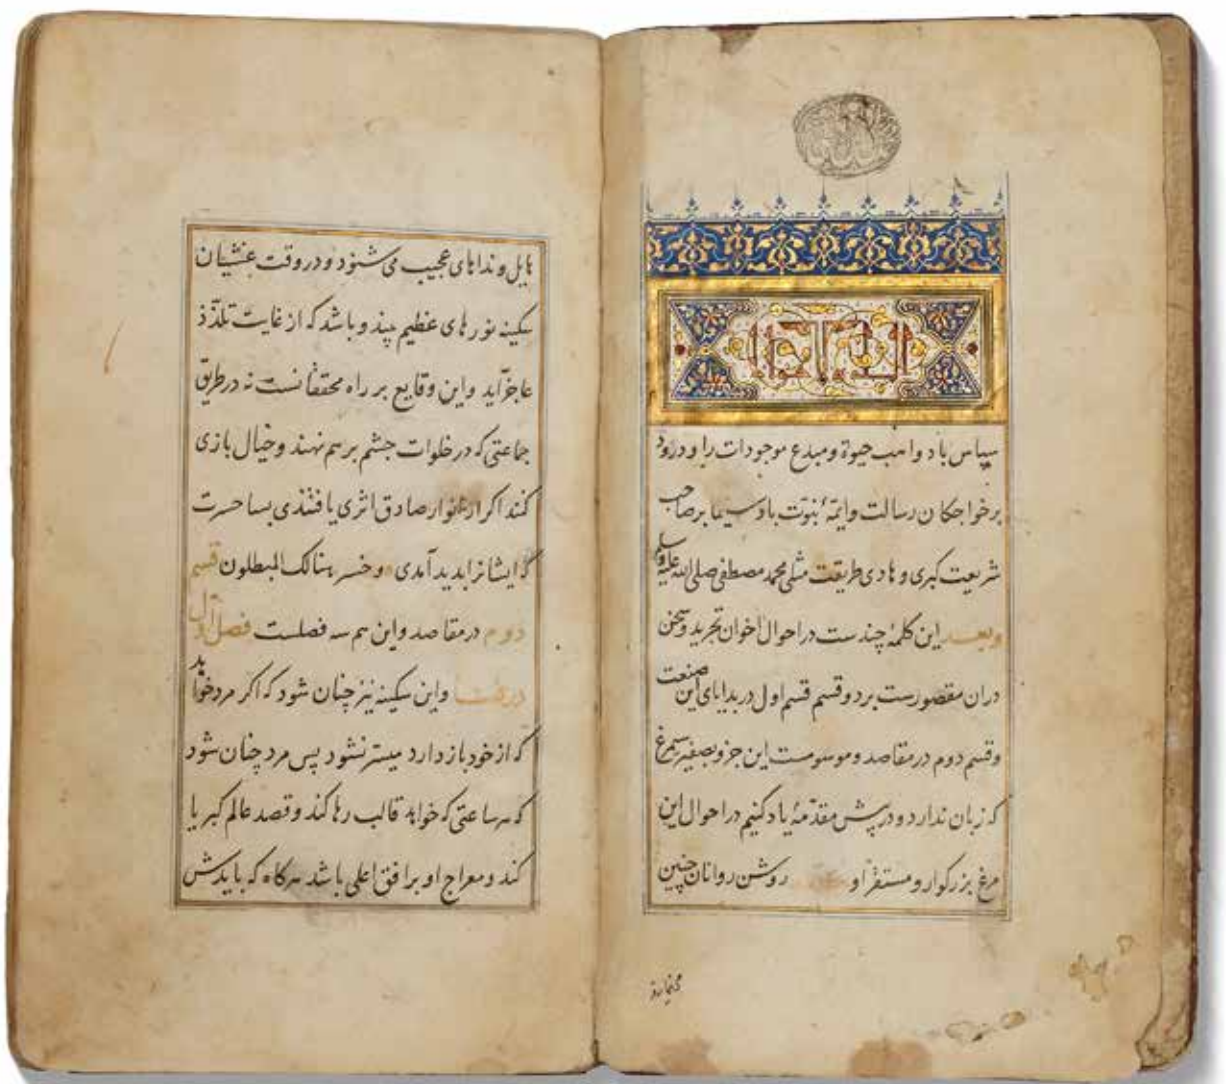 سپاس باد واهب حیوة ومبدع موجودات را ودرود
بر خواجکان رسالت وایمهٔ نبوّت باد سیما بر صاحب
شریعت کبری و هادی طریقت مثلی محمد مصطفی صلی الله علیه وسلم
وبعد این کلمهٔ چندست در احوال اخوان تجرید وسخن
دران مقصورست بر دو قسم قسم اول در بدایای این صنعت
وقسم دوم در مقاصد وموسومست این جزو بصفیر سیمرغ
که زبان ندارد ودر پیش مقدّمهٔ یاد کنیم در احوال این
مرغ بزرکوار ومستقرّ او روشن روانان چنین
هایل ونداهای عجیب می شنود ودر وقت غشیان
سکینه نورهای عظیم بیند وباشد که از غایت تلذّذ
عاجز آید واین وقایع بر راه محققانست نه در طریق
جماعتی که در خلوات چشم بر هم نهند وخیال بازی
کنند اکر از انوار صادق اثری یافتندی بسا حسرت
که ایشانرا بدید آمدی وخسر هنالک المبطلون قسم
دوم در مقاصد واین هم سه فصلست فصل اول
در فنا واین سکینه نیز چنان شود که اکر مرد خواهد
که از خود باز دارد میسّر نشود پس مرد چنان شود
که هر ساعتی که خواهد قالب رها کند وقصد عالم کبریا
کند ومعراج او بر افق اعلی باشد هرکاه که بایدش